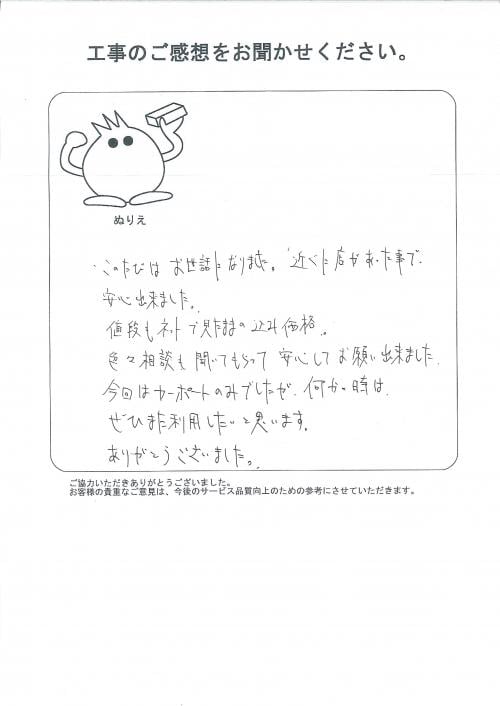 工事のご感想をお聞かせください。
ぬりえ
このたびは お世話になりました。近くに店があった事で
安心出来ました。
値段もネットで見たままの込み価格。
色々相談も聞いてもらって安心してお願い出来ました。
今回はカーポートのみでしたが、何かの時は、
ぜひまた利用したいと思います。
ありがとうございました。
ご協力いただきありがとうございました。
お客様の貴重なご意見は、今後のサービス品質向上のための参考にさせていただきます。